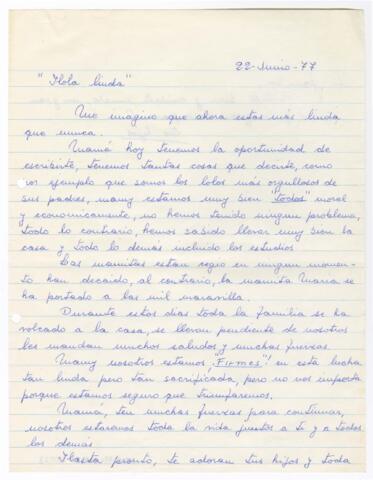 22-Junio-77
"Hola linda"
Me imagino que ahora estas más linda
que nunca.
Mamá hoy tenemos la oportunidad de
escribirte, tenemos tantas cosas que decirte, como
por ejemplo que somos los lolos más orgullosos de
sus padres, mamy estamos muy bien "todos" moral
y economicamente, no hemos tenido ningun problema,
todo lo contrario, hemos sabido llevar muy bien la
casa y todo lo demás incluido los estudios.
Las mamitas estan regio en ningun momen-
to han decaido, al contrario, la mamita Maria se
ha portado a las mil maravilla.
Durante estos dias toda la familia se ha
volcado a la casa, se llevan pendiente de nosotros
les mandan muchos saludos y muchas fuerzas.
Mamy nosotros estamos "Firmes" en esta lucha
tan linda pero tan sacrificada, pero no nos importa
porque estamos seguro que triunfaremos.
Mamá, ten muchas fuerzas para continuar,
nosotros estaremos toda la vida juntos a ti y a todos
los demás
Hasta pronto, te adoran tus hijos y toda